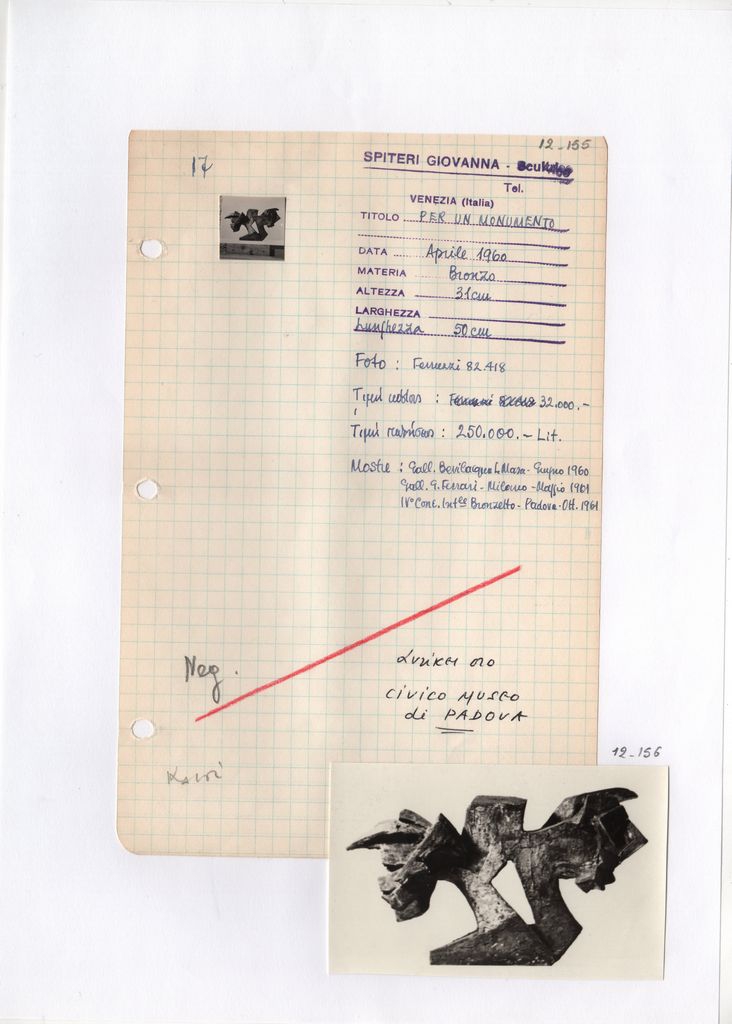 12_155
17
SPITERI GIOVANNA -
Tel.
VENEZIA (Italia)
TITOLO PER UN MONUMENTO
DATA Aprile 1960
MATERIA Bronzo
ALTEZZA 31 cm
LARGHEZZA
Lunghezza 50 cm
Foto : Ferruzzi 82.418
: 32.000.-
: 250.000.- Lit.
Mostre : Gall. Bevilacqua L. Masa - Giugno 1960
Gall. G. Ferrari - Milano - Maggio 1961
IV° Conc. Int.le Bronzetto - Padova - Ott. 1961
Neg.
ανήκει στο
CIVICO MUSEO
di PADOVA
12_156